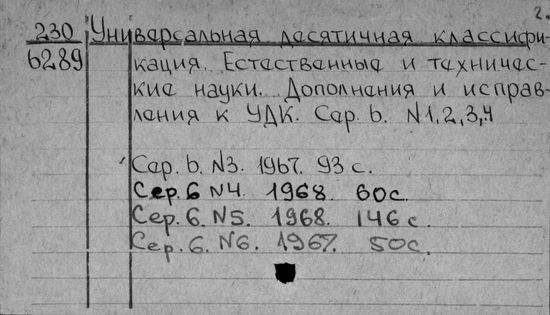 2.
230 Универсальная десятичная классифи-
6289 кация. Естественные и техничес-
кие науки. Дополнения и исправ-
ления к УДК. Сер. 6. N1,2,3,4
Сер. 6. N3. 1967. 93 с.
Сер. 6 N4. 1968. 60с.
Сер. 6. N5. 1968. 146 с.
Сер. 6. N6. 1967. 50с.